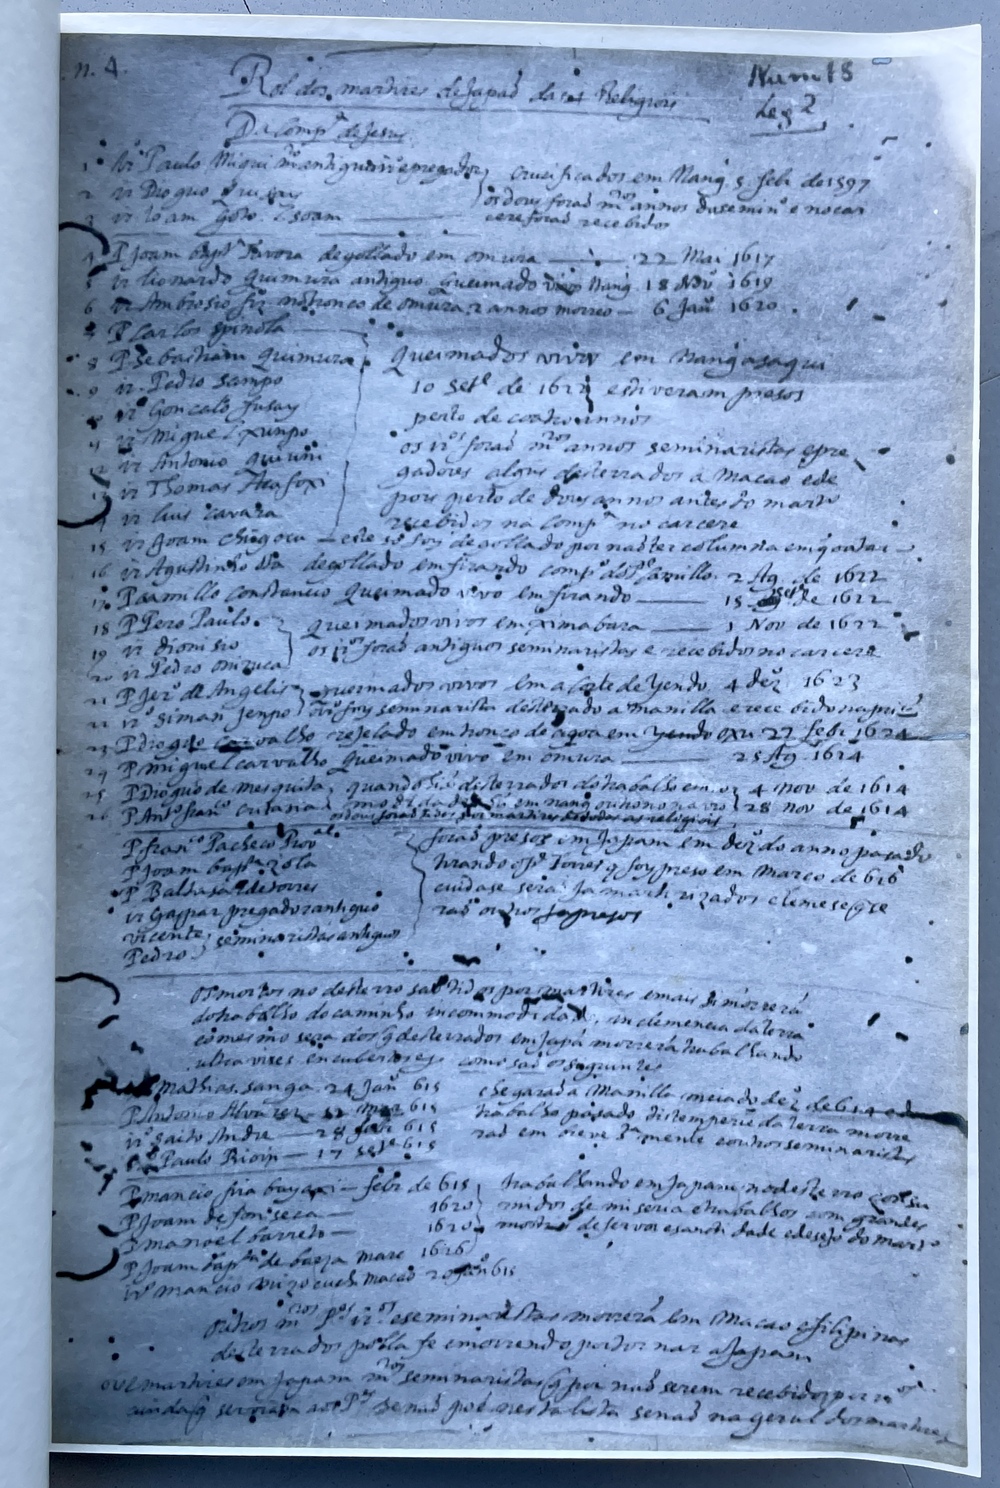 n. 4.
Num 18
Leg 2
Rol dos martires de Japaõ das 4 Religiois
Da Compª de Jesus
1 Irº Paulo Miqui mto antiguo irº e pregador
2 Ir Dioguo
3 Ir Joam Goto Isoam
crucificados em Nang. 5 Febr de 1597
os dous foraõ mtos annos do semino e no car
cere foraõ recebidos
4 P Joam Baptª Tavora degollado em omura 22 Mai 1617
5 Ir Lionardo Quimura antiguo Queimado vivo Nang. 18 Nov 1619
6 Ir Ambrosio frz no tronco de omura 2 annos morreo 6 Jan 1620
7 P Carlos Spinola
8 P Sebastiam Quimura
9 ir. Pedro Sampo
irº Goncalo fusay
ir Miguel Xunpo
ir Antonio quiuni
ir Thomas Acafoxi
ir Luis cavara
Queimados vivos em Nangasaqui
10 Setº de 1622 estiveram presos
perto de coatro annos
os irºs foraõ mtos annos seminaristas e pre
gadores alguns desterrados a Macao e de
pois perto de dous annos antes do marto
recebidos na compª no carcere
15 ir Joam Chugocu este so foy degollado por naõ ter columna em q o atar
16 ir Agustinho Ota degollado em firando compº do P Camillo. 2 Ag. de 1622
17 P Camillo Constancio Queimado vivo em firando 15 Setº de 1622
18 P Pero Paulo.
19 ir dionisio
20 ir Pedro onizuca
queimados vivos em Ximabara 1 Nov de 1622
os irºs foraõ antiguos seminaristas e recebidos no carcere
21 P Jerº de Angelis
22 irº Siman Jenpo
queimados vivos em a Corte de Yendo 4 dez 1623
o irº foy seminarista desterrado a Manilla e recebido na
23 P dioguo carvalho em tronco de agoa em oxu 22 Febr 1624
24 P Miguel carvalho queimado vivo em omura 25 Ag. 1624
25 P Dioguo de mesquita
26 P Antº franº critana
4 Nov de 1614
28 nov de 1614
P franco Pacheco Proval
P Joam baptª zola
P Baltasar de torres
ir Gaspar pregador antiguo
vicente, seminaristas antiguos
Pedro
foraõ presos em Japam em dezº do anno pasado
tirando o P Torres q foy preso em Março de 626
cuidase seraõ ja martirizados e temese q se
raõ outros
Os mortos no desterro saõ tidos por martires e mais si morreraõ
do trabalho do caminho incommodidade, inclemencia da terra
o mesmo sera dos q desterrados em Japã morreraõ trabalhando
ultra vires encubertos como saõ os seguintes
Mathias. Sanga. 24 Janº 615
P Antonio Alvarez 615
irº Saito Andre 28 febr 615
Paulo Rioin 17 Setº 615
chegaraõ a Manilla meado dez de 614 e do
trabalho pasado distemperie da terra morre
raõ em breve santamente e outros seminaristas
P mancio firabayaxi febr de 615
P Joam de fonseca 1620
P manoel barreto 1620
P Joam Baptª de baeza Março 1626
irº Mancio Mizoguchi Macao 20 Jan 615
trabalhando em Japam no desterro consu
midos de miseria e trabalhos com grandes
mostras de fervor e santidade e desejo do martº
outros mtos Pes irºs e seminaristas morreraõ em Macao e Filipinas
desterrados polla fe e morrendo por tornar a Japam
ouve martires em Japam mtos seminaristas q por naõ serem recebidos
ainda q serviam aos Pes se naõ poẽ nesta lista senaõ na geral dos martires